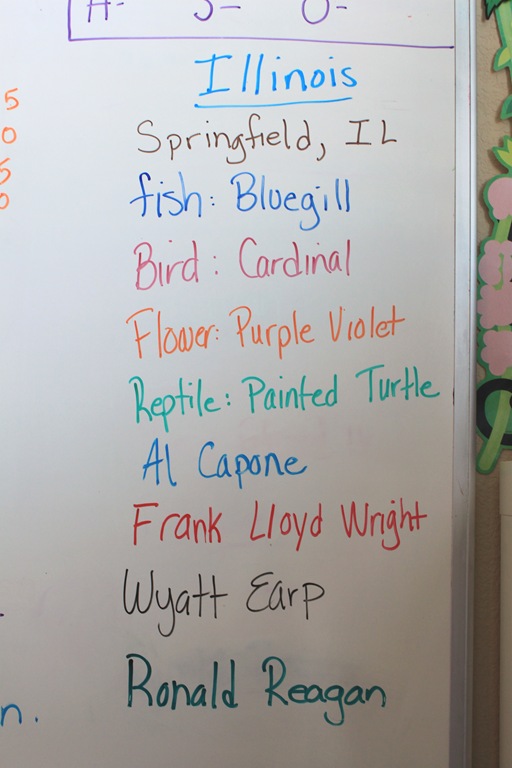 Illinois
Springfield, IL
fish: Bluegill
Bird: Cardinal
Flower: Purple Violet
Reptile: Painted Turtle
Al Capone
Frank Lloyd Wright
Wyatt Earp
Ronald Reagan
5
0
5
0
n.